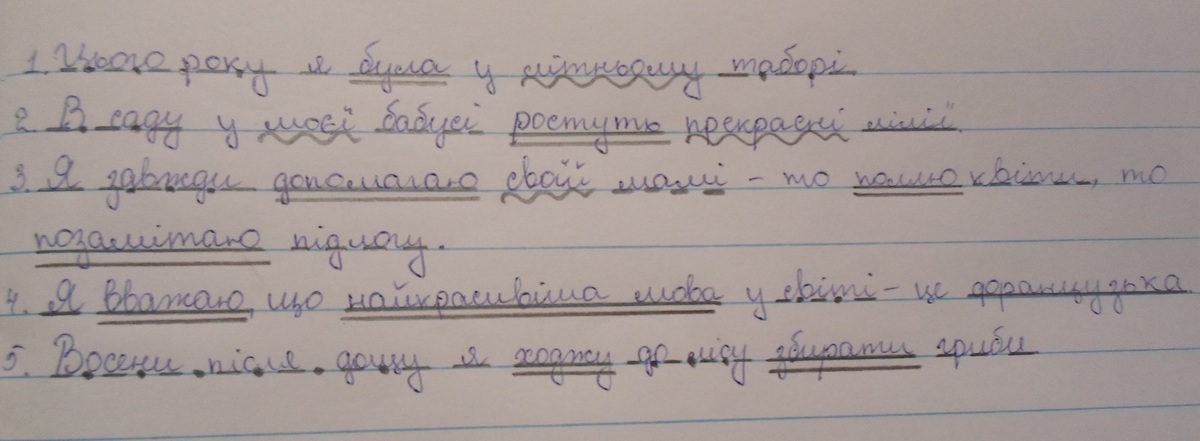 1. Цього року я була у літньому таборі.
2. В саду у моєї бабусі ростуть прекрасні лілії.
3. Я завжди допомагаю своїй мамі - то полю квіти, то
позамітаю підлогу.
4. Я вважаю, що найкрасивіша мова у світі - це французька.
5. Восени після дощу я ходжу до лісу збирати гриби